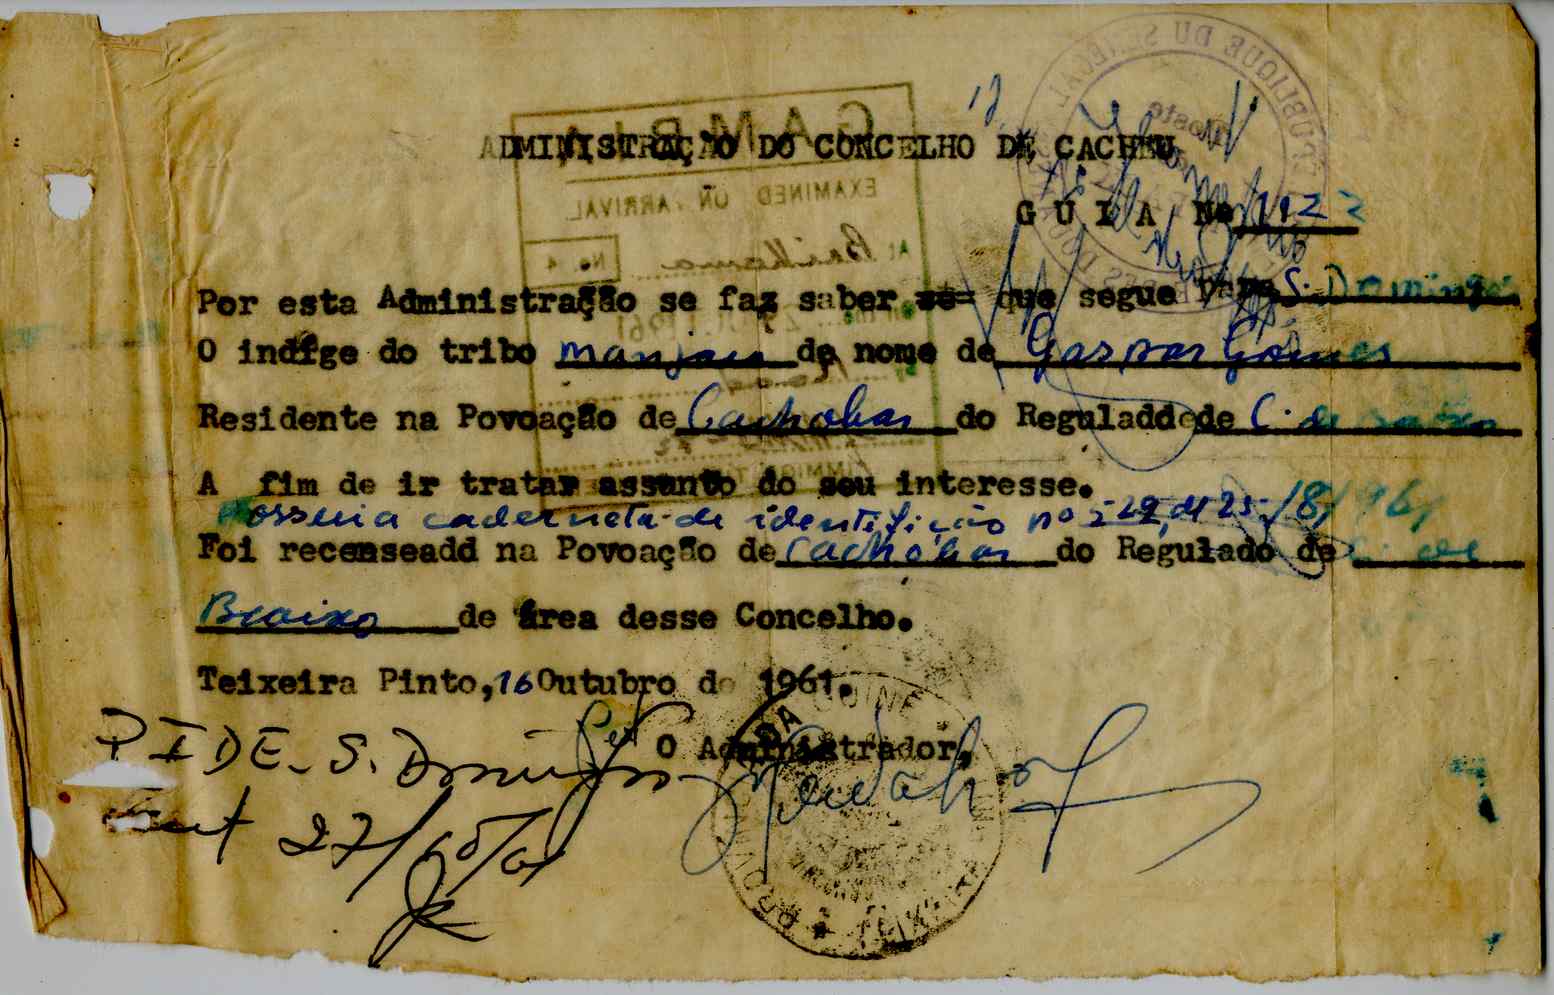 ADMINISTRAÇÃO DO CONCELHO DE CACHEU
G U I A No 1122
Por esta Administração se faz saber se que segue para S. Domingos
O indíge do tribo manjaco de nome de Gaspar Gomes
Residente na Povoação de Cachobar do Reguladdede C. de Baixo
A fim de ir tratar assunto do seu interesse.
Possuia caderneta de identifição no 22, de 25/8/961
Foi recenseadd na Povoação de Cachobar do Regulado de C. de
Braixo de área desse Concelho.
Teixeira Pinto, 16 Outubro de 1961.
O Administrador,
PIDE. S. Domingos
27/10/61
GAMBIA
EXAMINED ON ARRIVAL
At Brikama
No. 4
1961
IMMIGRATION
REPUBLIQUE DU SENEGAL
Poste
PROVINCIA DA GUINE
TEIXEIRA PINTO